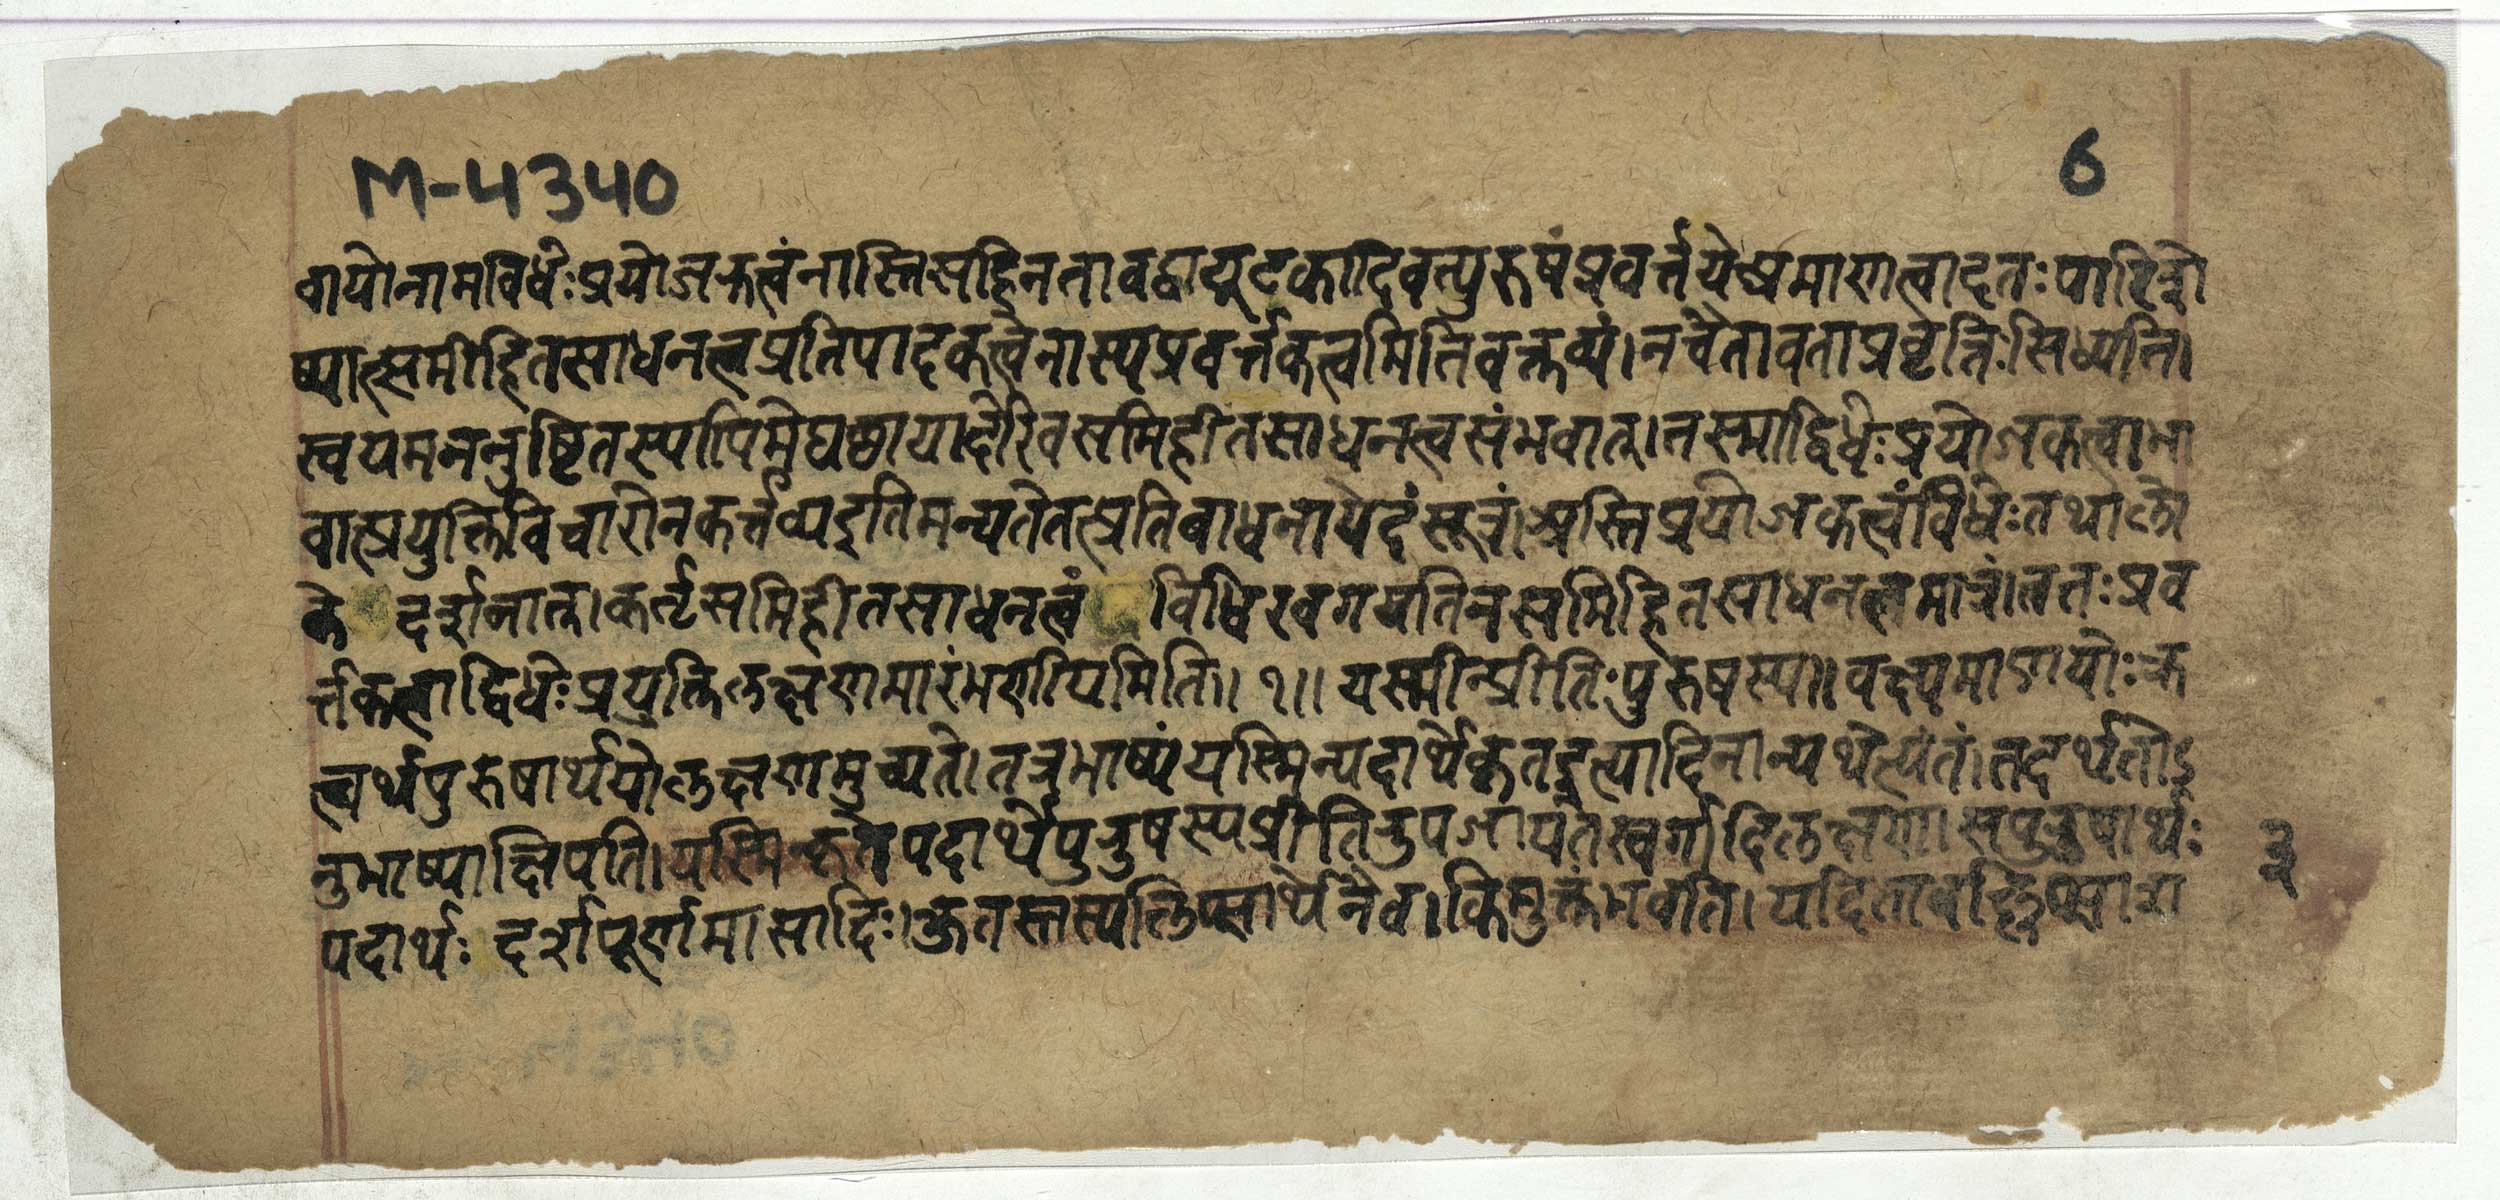 M-4340
6
वायोनामविधेःप्रयोजकत्वंनास्तिसहिनतावद्वायूदकादिवत्पुरुषंप्रवर्त्तयेप्रमाणत्वादतःपारिशे
ष्यात्समीहितसाधनत्वप्रतिपादकत्वेनास्यप्रवर्त्तकत्वमितिवक्तव्यं।नचैतावताप्रवृत्तिःसिध्यति।
स्वयमननुष्टितस्यापिमेघछायादेरिवसमिहीतसाधनत्वसंभवात्।तस्माद्विधेःप्रयोजकत्वाभा
वात्प्रयुक्तिविचारोनकर्त्तव्यइतिमन्यतेतत्प्रतिबाधनायेदंसूत्रं।अस्तिप्रयोजकत्वंविधेःतथालो
के दर्शनात्।कर्तृसमिहीतसाधनत्वं विधिरवगमयतिनसमिहितसाधनत्वमात्रं।ततःप्रव
र्त्तकत्वाद्विधेःप्रयुक्तिलक्षणमारंभणीयमिति।।१।।यस्मीन्प्रीतिःपुरुषस्य।।वक्ष्यमाणयोःक्र
त्वर्थपुरुषार्थयोर्लक्षणमुच्यते।तत्रभाष्यंयस्मिन्पदार्थेकृतइत्यादिनान्यथेत्यंतं।तदर्थतोऽ
नुभाष्याक्षिपति।यस्मिन्कृतेपदार्थेपुरुषस्यप्रीतिरुपजायतेस्वर्गादिलक्षणा।सपुरुषार्थः
पदार्थः दर्शपूर्णमासादिः।कुतस्तस्यलिप्सार्थेनैव।किमुक्तंभवति।यदितावल्लिप्सारा
३